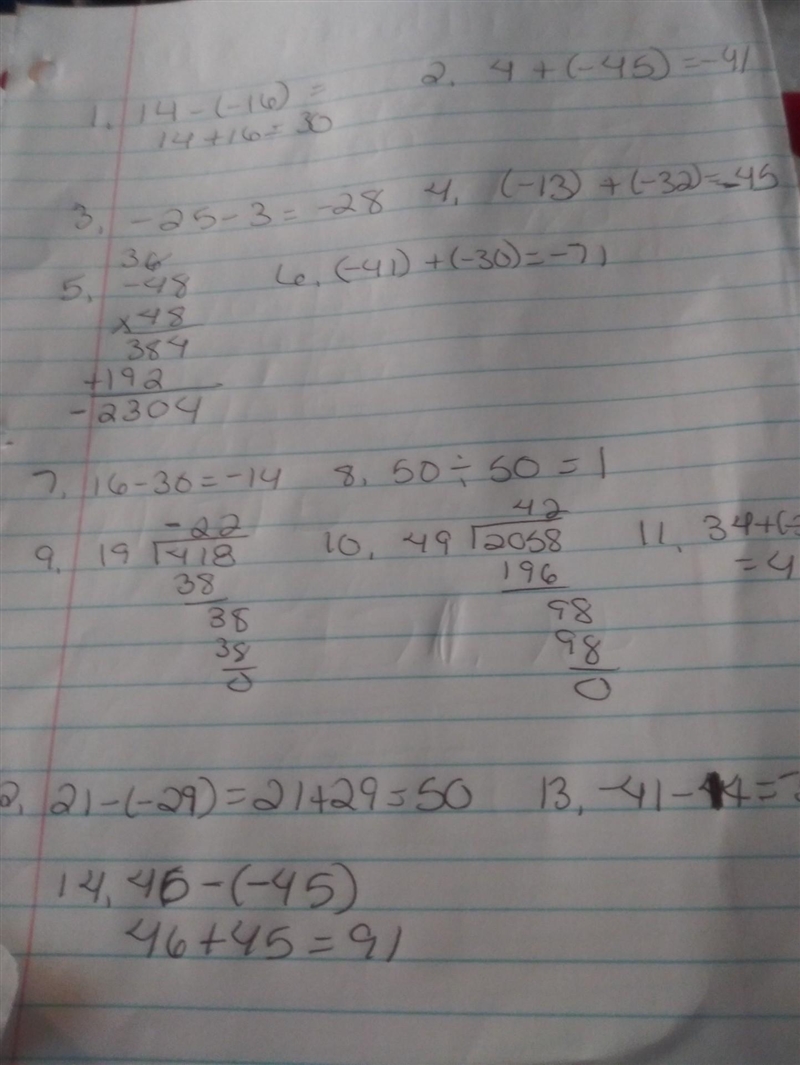 1. 14 - (-16) =
14 + 16 = 30
2. 4 + (-45) = -41
3. -25 - 3 = -28
4. (-13) + (-32) = -45
36
5. -48
x 48
384
+192
-2304
6. (-41) + (-30) = -71
7. 16 - 30 = -14
8. 50 ÷ 50 = 1
-22
9. 19 418
38
38
38
0
42
10. 49 2058
196
98
98
0
11. 34 + (-
= 4
2. 21 - (-29) = 21 + 29 = 50
13. -41 - 14 =
14. 46 - (-45)
46 + 45 = 91